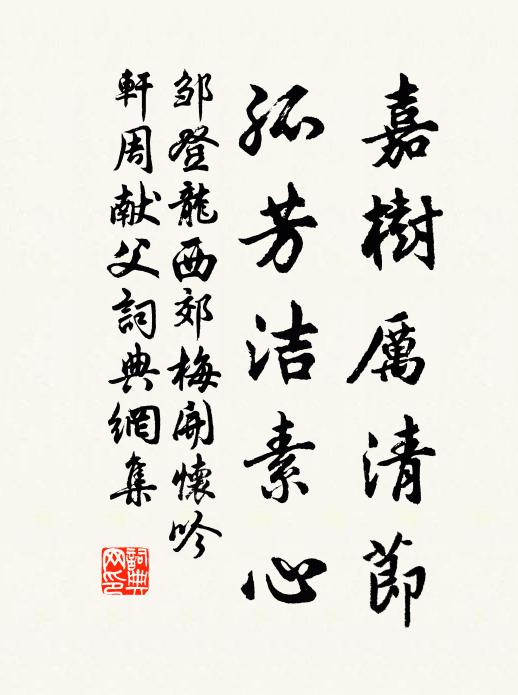 嘉樹厲清節
孤芳洁素心
邹登龍西郊梅開懷吟
軒周献父詞典網集
詞典网印